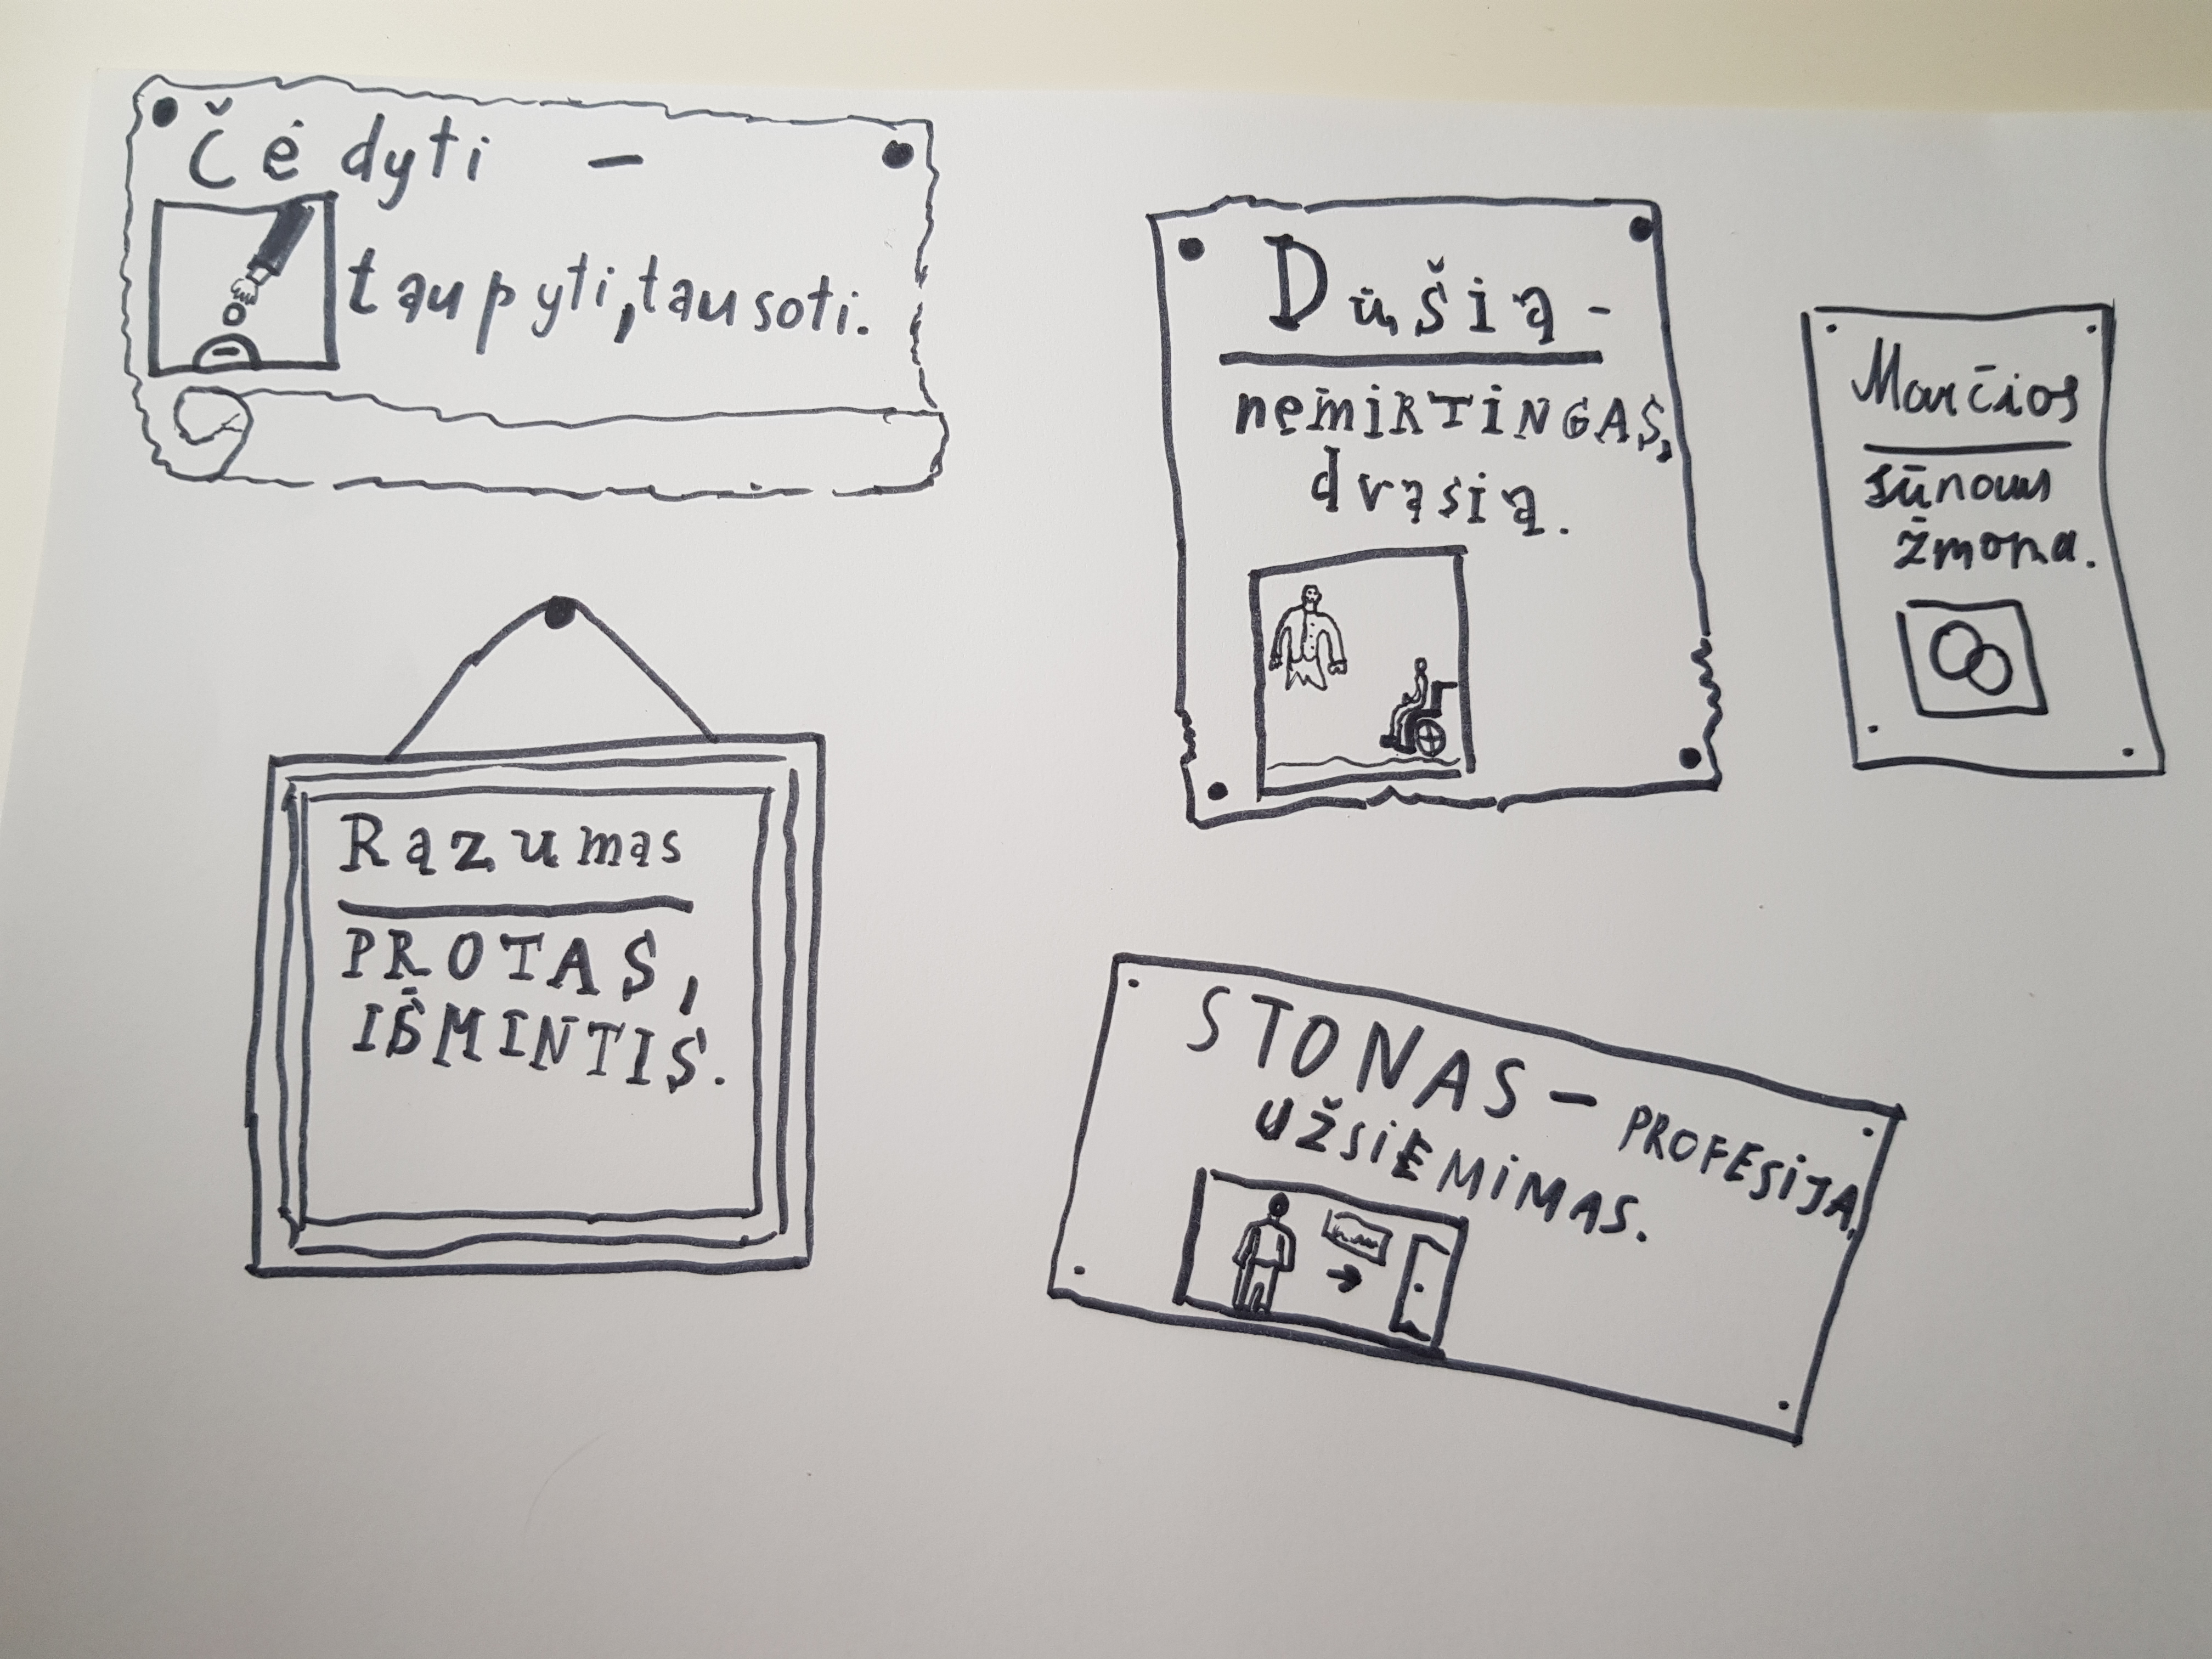 Čėdyti –
taupyti, tausoti.
Dūšią -
nemirtingas,
dvąsią.
Marčios
sūnaus
žmona.
Razumas
PROTAS,
IŠMINTIS.
STONAS – PROFESIJA,
UŽSIĖMIMAS.